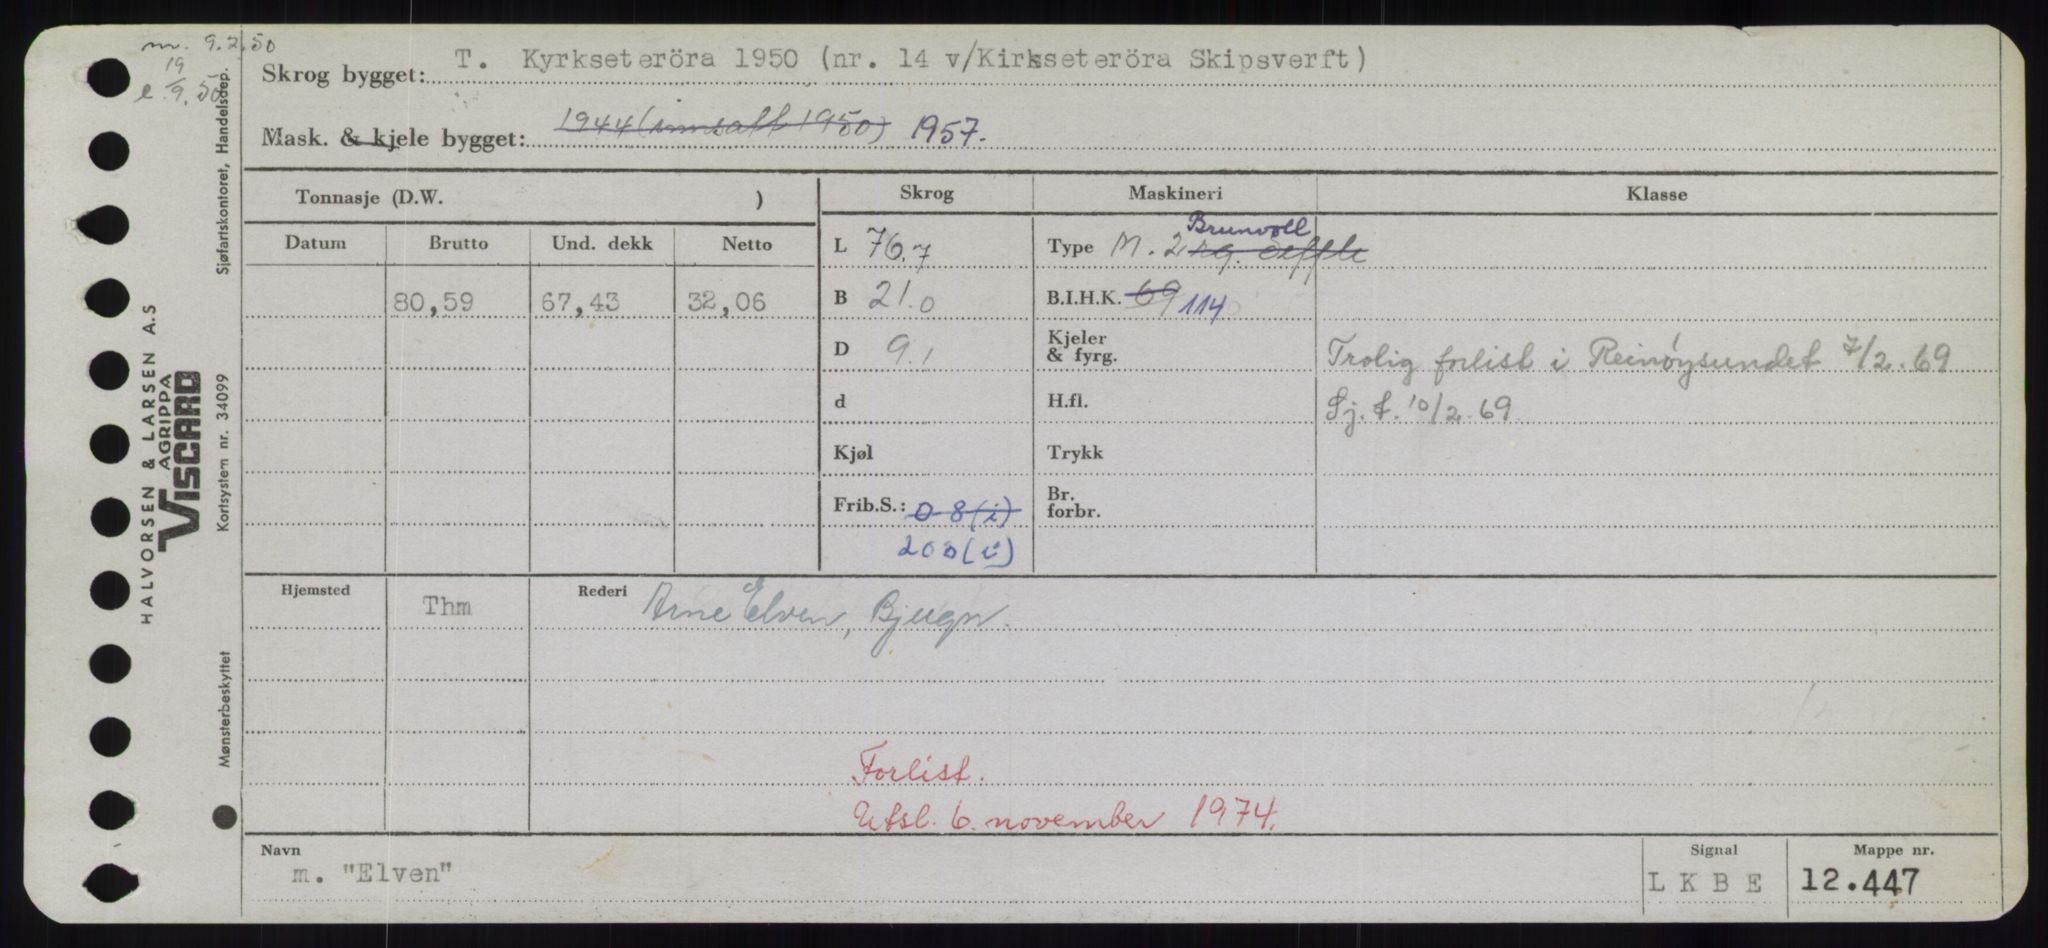 m. 9.2.50
e 19/9.50
Skrog bygget: T. Kyrkseteröra 1950 (nr. 14 v/Kirkseteröra Skipsverft)
Mask. & kjele bygget: 1944 (innsatt 1950) 1957.
Tonnasje (D.W. )
Skrog
Maskineri
Klasse
Datum
Brutto
Und. dekk
Netto
80,59
67,43
32,06
L 76.7
B 21.0
D 9.1
d
Kjøl
Frib.S.: 0-8 (i)
200 (i)
Brunvoll
Type M. 2
B.I.H.K. 69 114
Kjeler
& fyrg.
H.fl.
Trykk
Br.
forbr.
Trolig forlist i Reinøysundet 7/2.69
Sj.f. 10/2.69
Hjemsted
Thm
Rederi
Arne Elven, Bjugn.
Forlist.
Utsl. 6. november 1974.
Navn
m. "Elven"
Signal
LKBE
Mappe nr.
12.447
HALVORSEN & LARSEN A.S
AGRIPPA
VISCARD
Sjøfartskontoret, Handelsdep.
Kortsystem nr. 34099
Mønsterbeskyttet